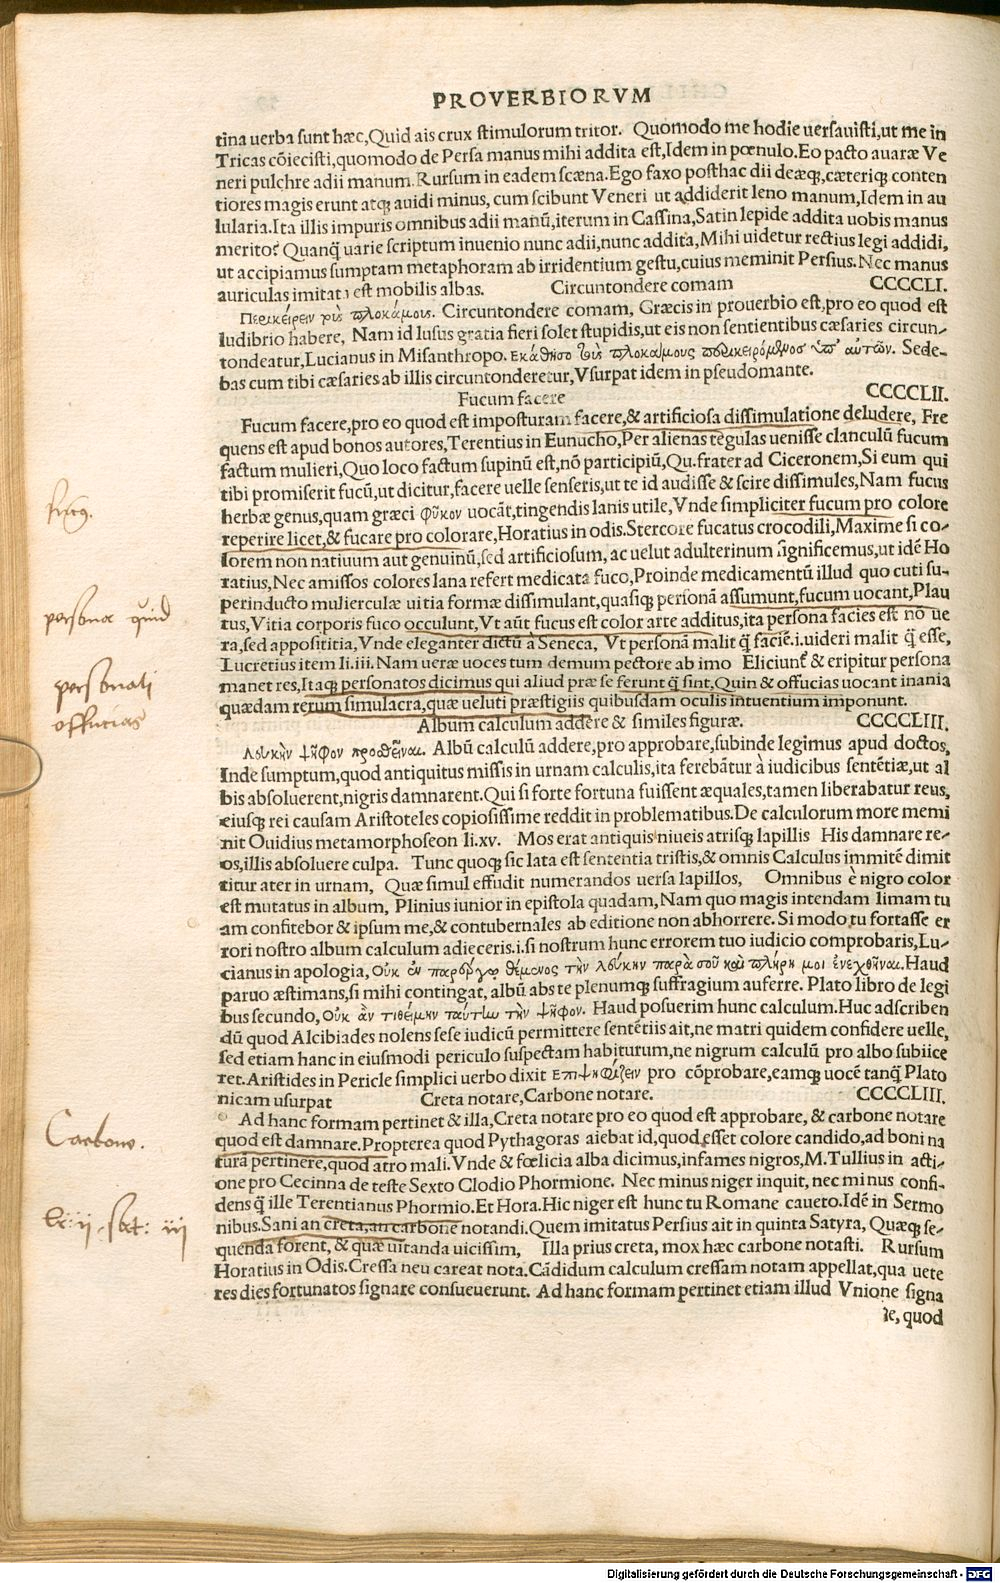 PROVERBIORVM
tina uerba sunt hæc,Quid ais crux stimulorum tritor. Quomodo me hodie uersauisti,ut me in
Tricas cõiecisti,quomodo de Persa manus mihi addita est,Idem in pœnulo.Eo pacto auaræ Ve
neri pulchre adii manum.Rursum in eadem scæna.Ego faxo posthac dii deæq;,cæteriq; conten
tiores magis erunt atq; auidi minus, cum scibunt Veneri ut addiderit leno manum,Idem in au
lularia.Ita illis impuris omnibus adii manũ,iterum in Cassina,Satin lepide addita uobis manus
merito? Quanq̃ uarie scriptum inuenio nunc adii,nunc addita,Mihi uidetur rectius legi addidi,
ut accipiamus sumptam metaphoram ab irridentium gestu,cuius meminit Persius.Nec manus
auriculas imitata est mobilis albas. Circuntondere comam CCCCLI.
Περικείρειν τοὺς πλοκάμους. Circuntondere comam, Græcis in prouerbio est,pro eo quod est
ludibrio habere, Nam id lusus gratia fieri solet stupidis,ut eis non sentientibus cæsaries circun-
tondeatur,Lucianus in Misanthropo. Εκάθησο τοὺς πλοκάμους περικειρόμενος ὑπ' αὐτῶν. Sede-
bas cum tibi cæsaries ab illis circuntonderetur,Vsurpat idem in pseudomante.
Fucum facere CCCCLII.
Fucum facere,pro eo quod est imposturam facere,& artificiosa dissimulatione deludere, Fre
quens est apud bonos autores,Terentius in Eunucho,Per alienas tegulas uenisse clanculũ fucum
factum mulieri,Quo loco factum supinũ est,nõ participiũ,Qu.frater ad Ciceronem,Si eum qui
tibi promiserit fucũ,ut dicitur,facere uelle senseris,ut te id audisse & scire dissimules,Nam fucus
herbæ genus,quam græci φῦκον uocãt,tingendis lanis utile,Vnde simpliciter fucum pro colore
fucus.
reperire licet,& fucare pro colorare,Horatius in odis.Stercore fucatus crocodili,Maxime si co-
lorem non natiuum aut genuinũ,sed artificiosum, ac uelut adulterinum significemus,ut idẽ Ho
ratius,Nec amissos colores lana refert medicata fuco,Proinde medicamentũ illud quo cuti su-
perinducto mulierculæ uitia formæ dissimulant,quasiq; personã assumunt,fucum uocant,Plau
personæ quid
tus,Vitia corporis fuco occulunt,Vt aũt fucus est color arte additus,ita persona facies est nõ ue
ra,sed appositítia,Vnde eleganter dictũ à Seneca, Vt personã malit q̃ faciẽ.i.uideri malit q̃ esse,
Lucretius item li.iii.Nam ueræ uoces tum demum pectore ab imo Eliciunt̃ & eripitur persona
manet res,Itaq; personatos dicimus qui aliud præ se ferunt q̃ sint,Quin & offucias uocant inania
personati
quædam rerum simulacra,quæ ueluti præstigiis quibusdam oculis intuentium imponunt.
offucias
Album calculum addere & similes figuræ. CCCCLIII.
Λευκὴν ψῆφον προσθεῖναι. Albũ calculũ addere,pro approbare,subinde legimus apud doctos,
Inde sumptum,quod antiquitus missis in urnam calculis,ita ferebãtur à iudicibus sentẽtiæ,ut al
bis absoluerent,nigris damnarent.Qui si forte fortuna fuissent æquales,tamen liberabatur reus,
eiusq; rei causam Aristoteles copiosissime reddit in problematibus.De calculorum more memi
nit Ouidius metamorphoseon li.xv. Mos erat antiquis niueis atrisq; lapillis His damnare re-
os,illis absoluere culpa. Tunc quoq; sic lata est sententia tristis,& omnis Calculus immitẽ dimit
titur ater in urnam, Quæ simul effudit numerandos uersa lapillos, Omnibus è nigro color
est mutatus in album, Plinius iunior in epistola quadam,Nam quo magis intendam limam tu
am confitebor & ipsum me,& contubernales ab editione non abhorrere. Si modo tu fortasse er
rori nostro album calculum adieceris.i.si nostrum hunc errorem tuo iudicio comprobaris,Lu-
cianus in apologia, Οὐκ ἐν παρέργῳ θέμενος τὴν λευκὴν παρὰ σοῦ καὶ πλήρη μοι ἐνεχθῆναι.Haud
paruo æstimans,si mihi contingat, albũ abs te plenumq; suffragium auferre. Plato libro de legi
bus secundo,Οὐκ ἂν τιθείμην ταύτην τὴν ψῆφον. Haud posuerim hunc calculum.Huc adscriben
dũ quod Alcibiades nolens sese iudicũ permittere sentẽtiis ait,ne matri quidem confidere uelle,
sed etiam hanc in eiusmodi periculo suspectam habiturum,ne nigrum calculũ pro albo subiice
ret.Aristides in Pericle simplici uerbo dixit ἐπιψηφίζειν pro cõprobare,eamq; uocẽ tanq̃ Plato
nicam usurpat Creta notare,Carbone notare. CCCCLIII.
Ad hanc formam pertinet & illa,Creta notare pro eo quod est approbare, & carbone notare
Carbone.
quod est damnare.Propterea quod Pythagoras aiebat id,quod esset colore candido,ad boni na
turã pertinere,quod atro mali.Vnde & fœlicia alba dicimus,infames nigros,M.Tullius in acti-
one pro Cecinna de teste Sexto Clodio Phormione. Nec minus niger inquit, nec minus confi-
dens q̃ ille Terentianus Phormio.Et Hora.Hic niger est hunc tu Romane caueto.Idẽ in Sermo
nibus.Sani an creta,an carbone notandi.Quem imitatus Persius ait in quinta Satyra, Quæq; se-
quenda forent, & quæ uitanda uicissim, Illa prius creta, mox hæc carbone notasti. Rursum
Horatius in Odis.Cressa neu careat nota.Cãdidum calculum cressam notam appellat,qua uete
res dies fortunatos signare consueuerunt. Ad hanc formam pertinet etiam illud Vnione signa
le, quod
Digitalisierung gefördert durch die Deutsche Forschungsgemeinschaft - DFG